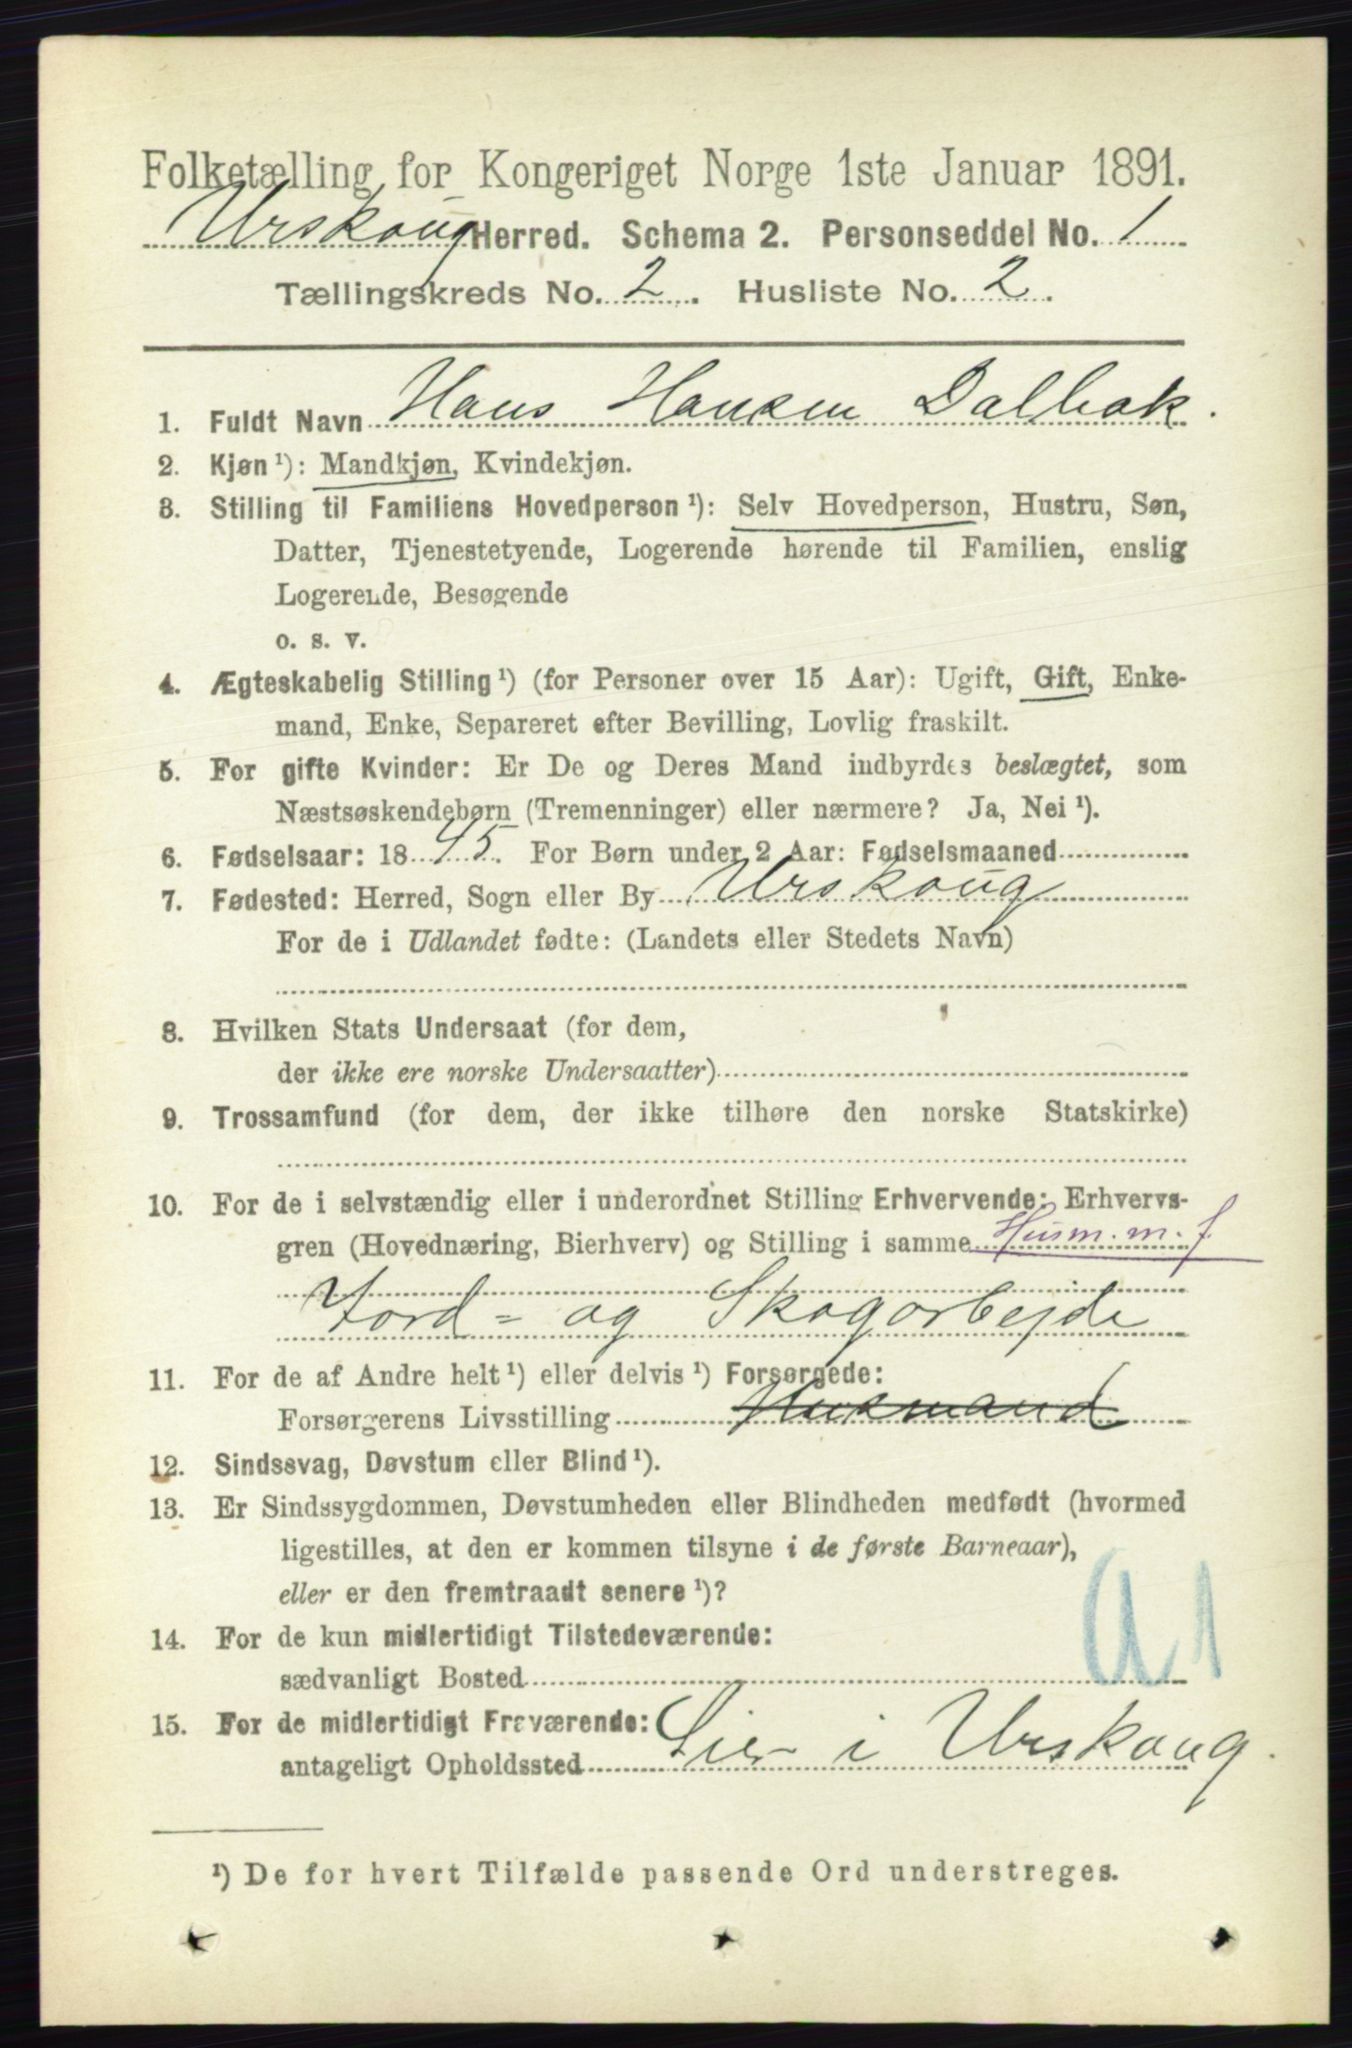 Folketælling for Kongeriget Norge 1ste Januar 1891.
Urskoug Herred. Schema 2. Personseddel No. 1
Tællingskreds No. 2. Husliste No. 2.
1. Fuldt Navn Hans Hansen Dalbak.
2. Kjøn ¹): Mandkjøn, Kvindekjøn.
3. Stilling til Familiens Hovedperson ¹): Selv Hovedperson, Hustru, Søn,
Datter, Tjenestetyende, Logerende hørende til Familien, enslig
Logerende, Besøgende
o. s. v.
4. Ægteskabelig Stilling ¹) (for Personer over 15 Aar): Ugift, Gift, Enke-
mand, Enke, Separeret efter Bevilling, Lovlig fraskilt.
5. For gifte Kvinder: Er De og Deres Mand indbyrdes beslægtet, som
Næstsøskendebørn (Tremenninger) eller nærmere? Ja, Nei ¹).
6. Fødselsaar: 1845. For Børn under 2 Aar: Fødselsmaaned
7. Fødested: Herred, Sogn eller By Urskoug
For de i Udlandet fødte: (Landets eller Stedets Navn)
8. Hvilken Stats Undersaat (for dem,
der ikke ere norske Undersaatter)
9. Trossamfund (for dem, der ikke tilhøre den norske Statskirke)
10. For de i selvstændig eller i underordnet Stilling Erhvervende: Erhvervs-
gren (Hovednæring, Bierhverv) og Stilling i samme Husm. m. j.
Jord- og Skogarbejde
11. For de af Andre helt ¹) eller delvis ¹) Forsørgede:
Forsørgerens Livsstilling Husmand
12. Sindssvag, Døvstum eller Blind ¹).
13. Er Sindssygdommen, Døvstumheden eller Blindheden medfødt (hvormed
ligestilles, at den er kommen tilsyne i de første Barneaar),
eller er den fremtraadt senere ¹)?
14. For de kun midlertidigt Tilstedeværende:
sædvanligt Bosted
a1
15. For de midlertidigt Fraværende:
antageligt Opholdssted Lier i Urskoug.
¹) De for hvert Tilfælde passende Ord understreges.